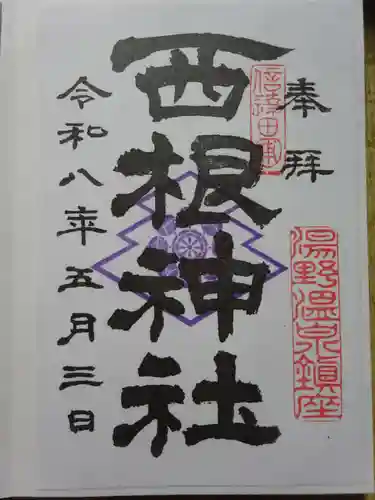 奉拝
信達田軍
湯野温泉鎮座
西根神社
令和八年五月三日